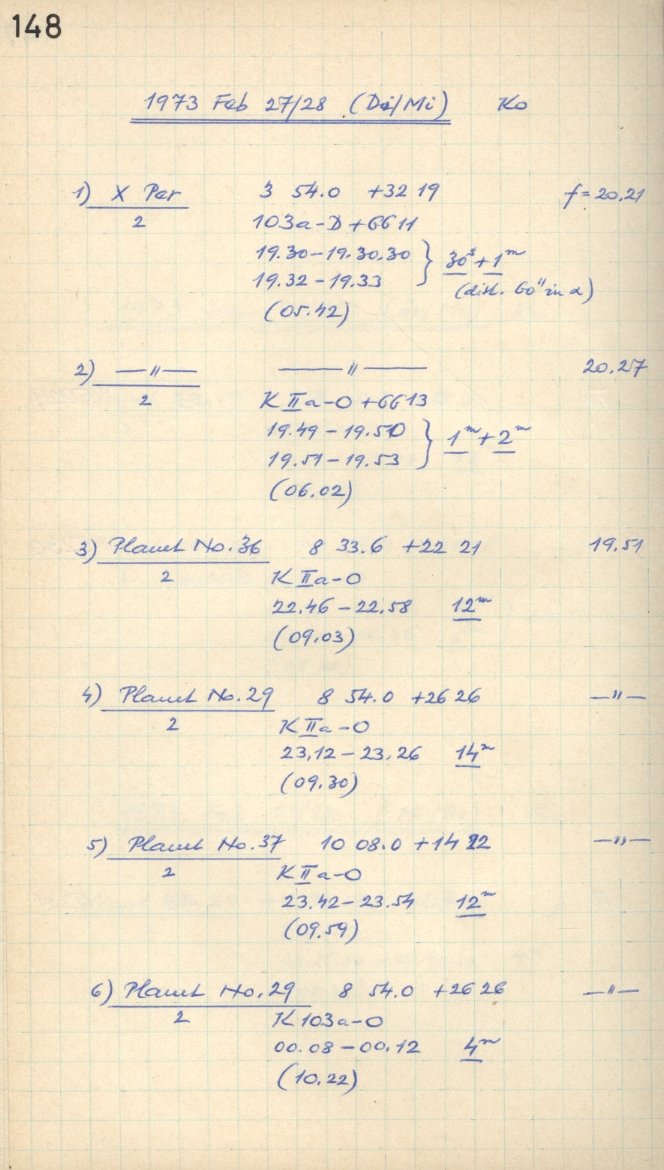 148
1973 Feb 27/28 (Di/Mi) Ko
1) X Per 3 54.0 +32 19 f=20.21
2 103a-D+GG11
19.30-19.30.30 } 30s+1m
19.32-19.33 (dist. 60" in α)
(05.42)
2) —"— —"— 20.27
2 KIIa-O+GG13
19.49-19.50 } 1m+2m
19.51-19.53
(06.02)
3) Planet No.36 8 33.6 +22 21 19.51
2 KIIa-O
22.46-22.58 12m
(09.03)
4) Planet No.29 8 54.0 +26 26 —"—
2 KIIa-O
23.12-23.26 14m
(09.30)
5) Planet No.37 10 08.0 +14 22 —"—
2 KIIa-O
23.42-23.54 12m
(09.59)
6) Planet No.29 8 54.0 +26 26 —"—
2 K103a-O
00.08-00.12 4m
(10.22)